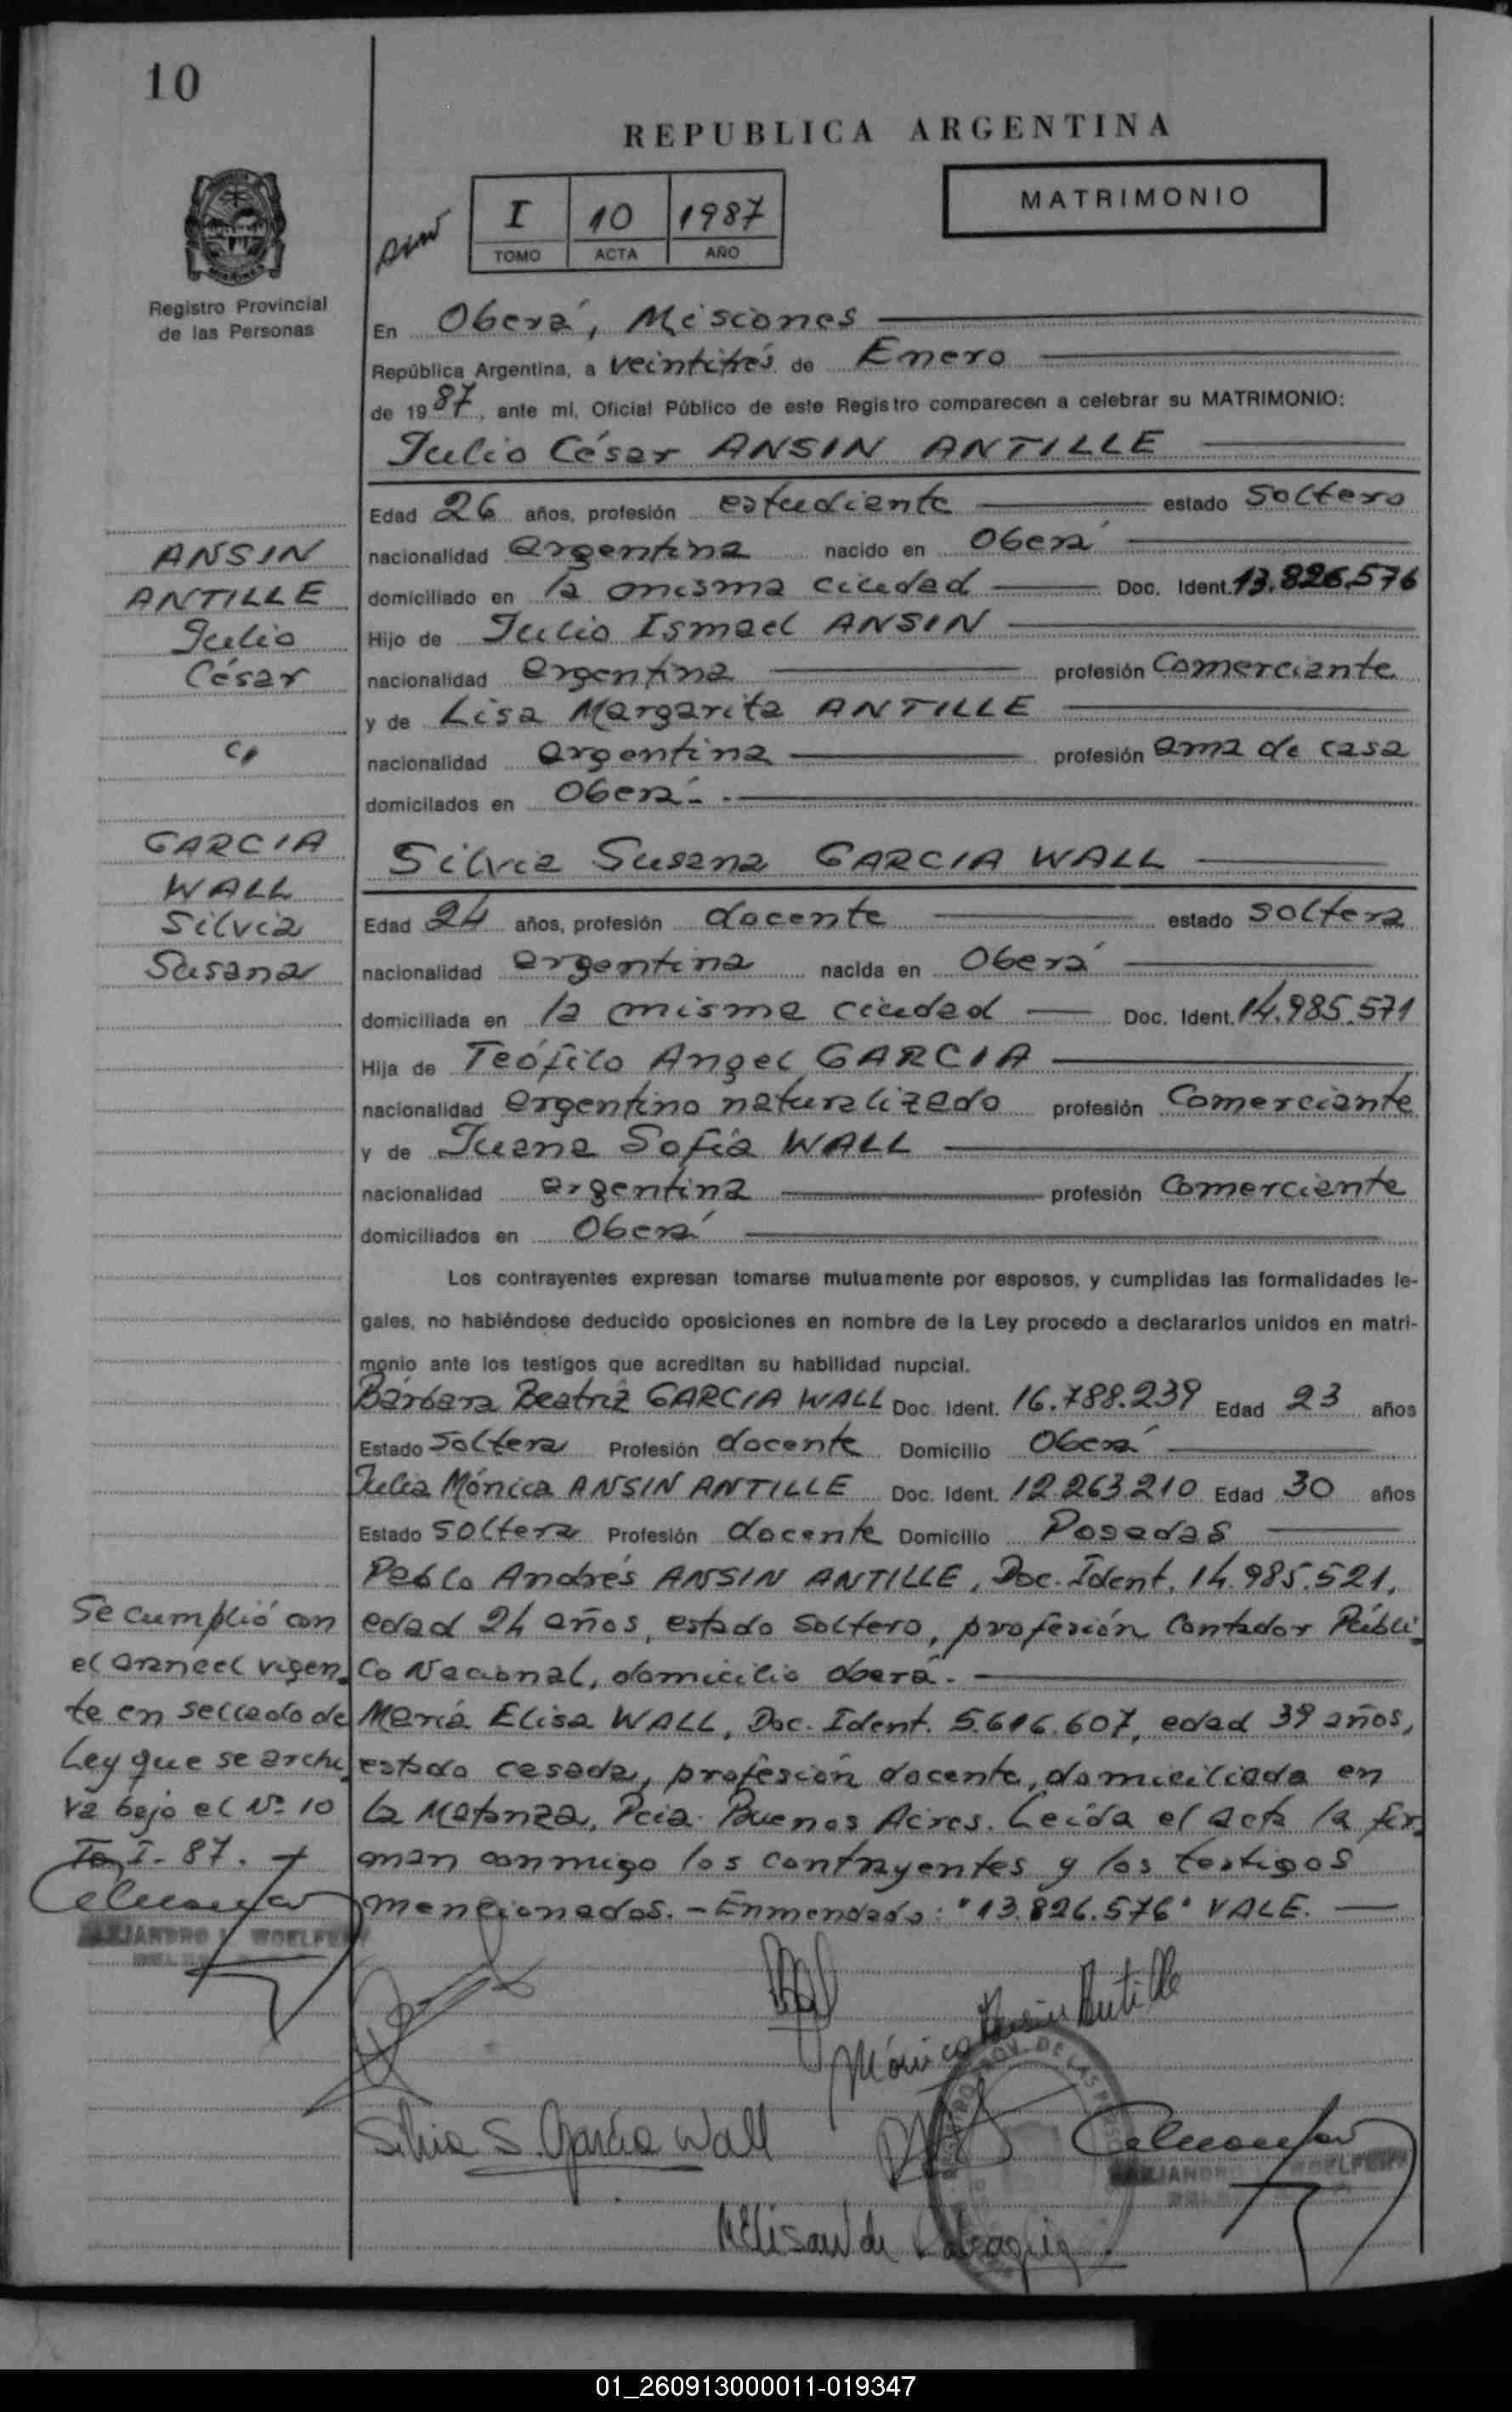 10
REPUBLICA ARGENTINA
I 10 1987
TOMO ACTA AÑO
MATRIMONIO
Registro Provincial
de las Personas
En Oberá, Misiones
República Argentina, a veintitrés de Enero
de 1987, ante mi, Oficial Público de este Registro comparecen a celebrar su MATRIMONIO:
Julio César ANSIN ANTILLE
Edad 26 años, profesión estudiante estado soltero
nacionalidad argentina nacido en Oberá
domiciliado en la misma ciudad Doc. Ident. 13.826.576
Hijo de Julio Ismael ANSIN
nacionalidad argentina profesión Comerciante
y de Lisa Margarita ANTILLE
nacionalidad argentina profesión ama de casa
domicilados en Oberá.-
ANSIN
ANTILLE
Julio
César
c/
GARCIA
WALL
Silvia
Susana
Silvia Susana GARCIA WALL
Edad 24 años, profesión docente estado soltera
nacionalidad argentina nacida en Oberá
domiciliada en la misma ciudad Doc. Ident. 14.985.571
Hija de Teófilo Angel GARCIA
nacionalidad argentino naturalizado profesión Comerciante
y de Juana Sofía WALL
nacionalidad argentina profesión Comerciante
domiciliados en Oberá
Los contrayentes expresan tomarse mutuamente por esposos, y cumplidas las formalidades le-
gales, no habiéndose deducido oposiciones en nombre de la Ley procedo a declararlos unidos en matri-
monio ante los testigos que acreditan su habilidad nupcial.
Bárbara Beatriz GARCIA WALL Doc. Ident. 16.788.239 Edad 23 años
Estado Soltera Profesión docente Domicilio Oberá
Julia Mónica ANSIN ANTILLE Doc. Ident. 12.263.210 Edad 30 años
Estado soltera Profesión docente Domicilio Posadas
Pablo Andrés ANSIN ANTILLE, Doc. Ident. 14.985.521,
edad 24 años, estado soltero, profesión Contador Públi-
co Nacional, domicilio Oberá.-
María Elisa WALL, Doc. Ident. 5.616.607, edad 39 años,
estado casada, profesión docente, domiciliada en
La Matanza, Pcia. Buenos Aires. Leída el acta la fir-
man conmigo los contrayentes y los testigos
mencionados. - Enmendado: "13.826.576" VALE.
Se cumplió con
el arancel vigen-
te en sellado de
Ley que se archi-
va bajo el Nº 10
To I- 87.
Mónica Ansin Antille
Silvia S. García Wall
01_260913000011-019347